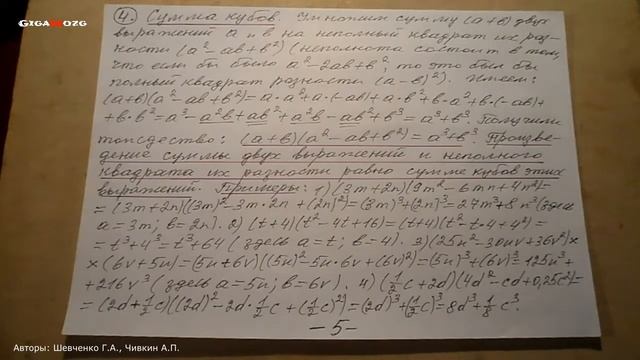 GIGAMOZG
4. Сумма кубов. Умножим сумму (a+b) двух
выражений a и b на неполный квадрат их раз-
ности (a²-ab+b²) (неполнота состоит в том,
что если бы было a²-2ab+b², то это был бы
полный квадрат разности (a-b)²). Имеем:
(a+b)(a²-ab+b²)=a·a²+a·(-ab)+a·b²+b·a²+b·(-ab)+
+b·b²=a³-a²b+ab²+a²b-ab²+b³=a³+b³. Получили
тождество: (a+b)(a²-ab+b²)=a³+b³. Произве-
дение суммы двух выражений и неполного
квадрата их разности равно сумме кубов этих
выражений. Примеры: 1) (3m+2n)(9m²-6mn+4n²)=
=(3m+2n)((3m)²-3m·2n+(2n)²)=(3m)³+(2n)³=27m³+8n³(здесь
a=3m; b=2n). 2) (t+4)(t²-4t+16)=(t+4)(t²-t·4+4²)=
=t³+4³=t³+64 (здесь a=t; b=4). 3)(25u²-30uv+36v²)×
×(6v+5u)=(5u+6v)((5u)²-5u·6v+(6v)²)=(5u)³+(6v)³=125u³+
+216v³ (здесь a=5u; b=6v). 4) (½c+2d)(4d²-cd+0,25c²)=
=(2d+½c)((2d)²-2d·½c+(½c)²)=(2d)³+(½c)³=8d³+⅛c³.
-5-
Авторы: Шевченко Г.А., Чивкин А.П.